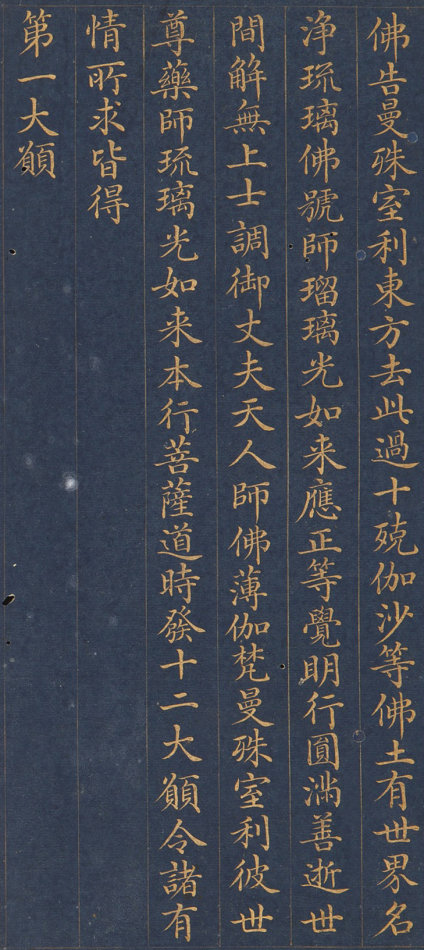 佛告曼殊室利東方去此過十殑伽沙等佛土有世界名
淨琉璃佛號師瑠璃光如来應正等覺明行圓滿善逝世
間解無上士調御丈夫天人師佛薄伽梵曼殊室利彼世
尊藥師琉璃光如来本行菩薩道時發十二大願令諸有
情所求皆得
第一大願